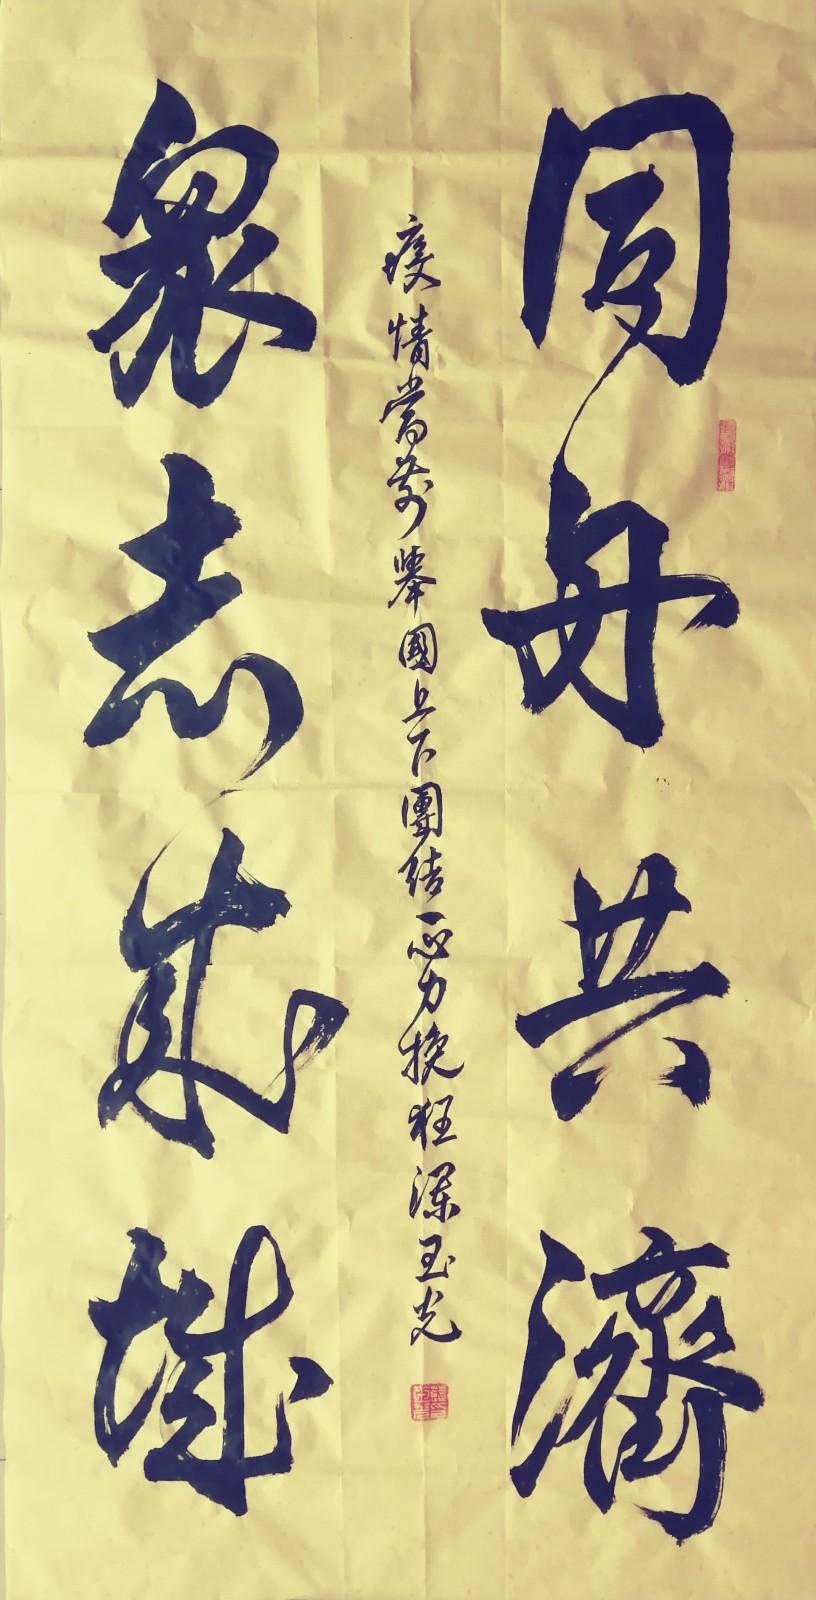 同舟共濟
疫情當前舉國上下團結一心力挽狂瀾玉光
眾志成城